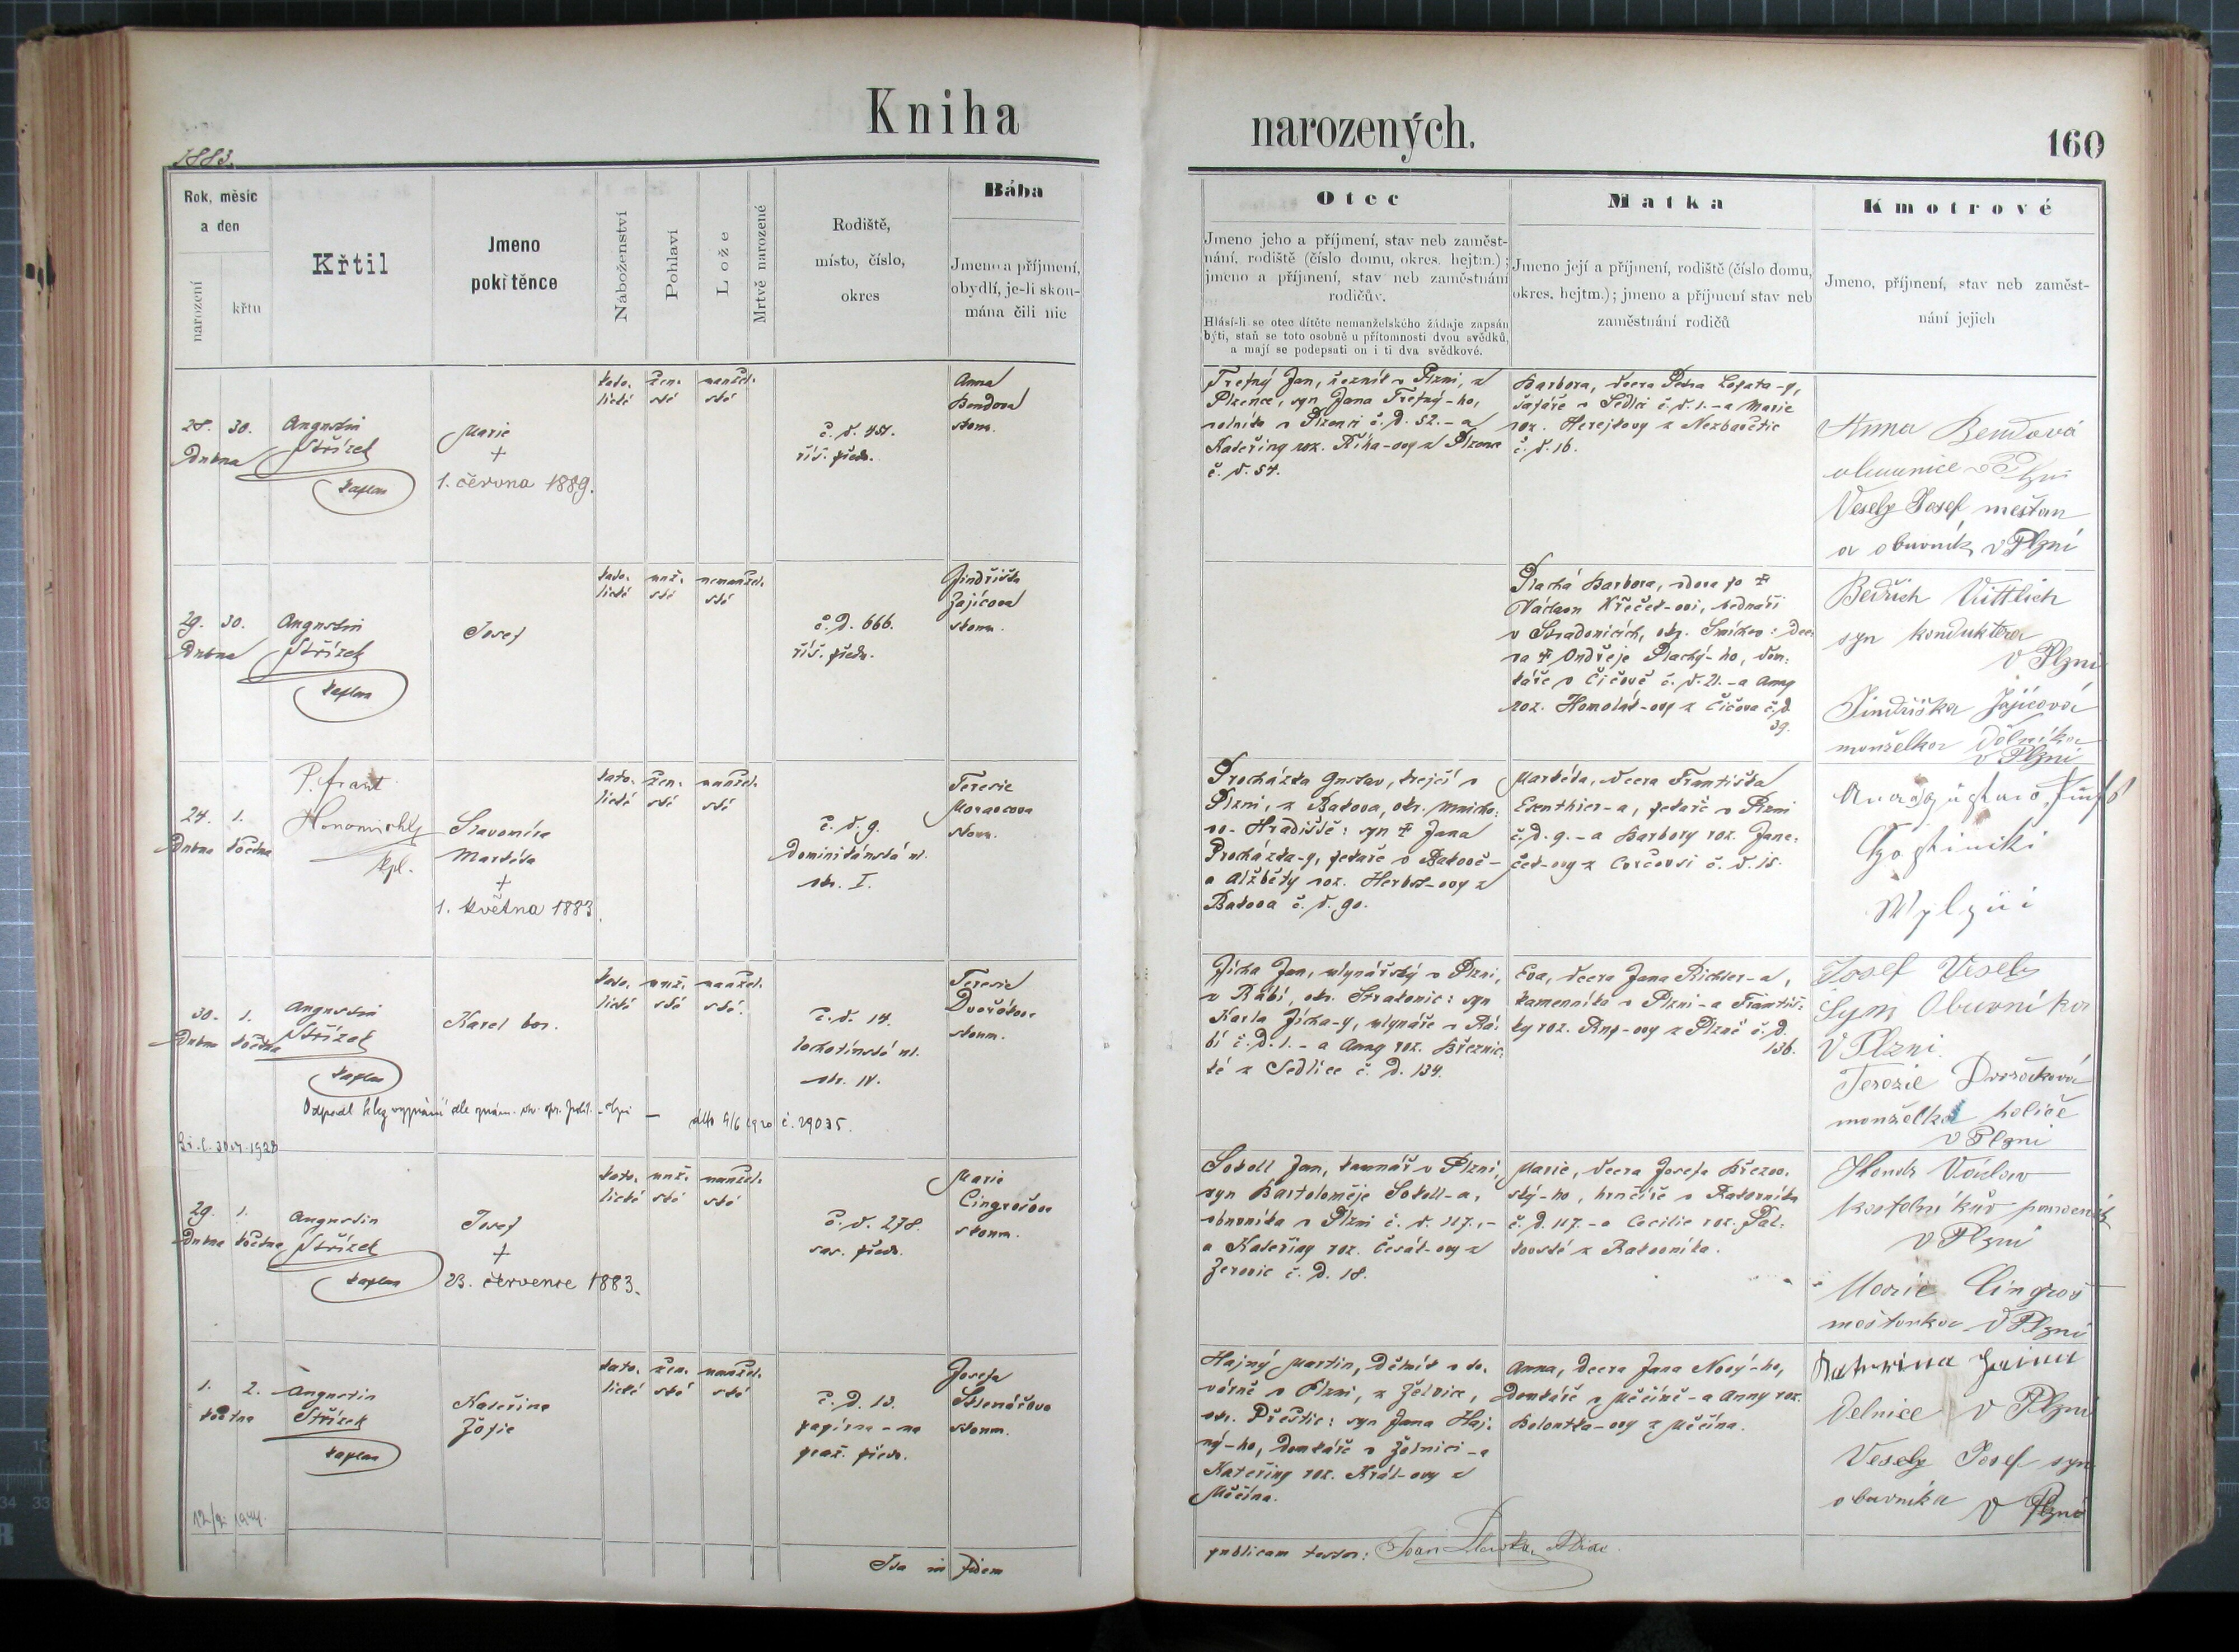 Kniha
narozených.
160
1883.
Rok, měsíc
a den
narození
křtu
Křtil
Jmeno
pokřtěnce
Náboženství
Pohlaví
Lože
Mrtvě narozené
Rodiště,
místo, číslo,
okres
Bába
Jmeno a příjmení,
obydlí, je-li skou-
mána čili nic
Otec
Jmeno jeho a příjmení, stav neb zaměst-
nání, rodiště (číslo domu, okres. hejtm.);
jmeno a příjmení, stav neb zaměstnání
rodičův.
Hlásí-li se otec dítěte nemanželského žádaje zapsán
býti, staň se toto osobně u přítomnosti dvou svědků,
a mají se podepsati on i ti dva svědkové.
Matka
Jmeno její a příjmení, rodiště (číslo domu,
okres. hejtm.); jmeno a příjmení stav neb
zaměstnání rodičů
Kmotrové
Jmeno, příjmení, stav neb zaměst-
nání jejich
28. 30.
Dubna
Augustin
Střízek
kaplan
Marie
+
1. června 1889.
kato-
lické
žen-
ské
manžel-
ské
č. d. 451.
říš. předm.
Anna
Bendova
skoum.
Trefný Jan, řezník v Plzni, z
Plzence, syn Jana Trefný-ho,
rolníka v Plzenci č. d. 52. - a
Kateřiny roz. Říha-ovy z Plzence
č. d. 54.
Barbora, dcera Petra Lopata-y,
šafáře v Sedlci č. d. 1. - a Marie
roz. Herejkovy z Nezbavětic
č. d. 16.
Anna Bendová
v Plzni
Veselý Josef mešťan
a obuvník v Plzni
29. 30.
Dubna
Augustin
Střízek
kaplan
Josef
kato-
lické
muž-
ské
nemanžel-
ské
č. d. 666.
říš. předm.
Jindřiška
Zajícova
skoum.
Plachá Barbora, vdova po +
Václavu Křeček-ovi, bednáři
v Stradonicích, okr. Smíchov: dce-
ra + Ondřeje Plachý-ho, dom-
káře v Čičově č. d. 21. - a Anny
roz. Homolák-ovy z Čičova č. d.
39.
Bedřich Vittlich
syn konduktera
v Plzni
Jindřiška Zajícová
manželka dělníka
v Plzni
24. 1.
Dubna května
P. Frant.
Honomichl
kpl.
Slavomíra
Markéta
+
1. května 1883.
kato-
lické
žen-
ské
manžel-
ské
č. d. 9.
Dominikánská ul.
okr. I.
Terezie
Moravcova
skoum.
Procházka Gustav, krejčí v
Plzni, z Bakova, okr. Mnicho-
vo-Hradiště: syn + Jana
Procházka-y, pekaře v Bakově -
a Alžběty roz. Herbst-ovy z
Bakova č. d. 90.
Markéta, dcera Františka
Esenthier-a, pekaře v Plzni
č. d. 9. - a Barbory roz. Jane-
ček-ovy z Cvrčovsi č. d. 15.
30. 1.
Dubna května
Augustin
Střízek
kaplan
Karel bor.
kato-
lické
muž-
ské
manžel-
ské.
č. d. 14.
lochotínské ul.
okr. IV.
Terezie
Dvořákova
skoum.
Jícha Jan, mlynářský v Plzni,
z Rábí, okr. Strakonic: syn
Karla Jícha-y, mlynáře v Rá-
bí č. d. 1. - a Anny roz. Březnic-
ké z Sedlice č. d. 134.
Eva, dcera Jana Richter-a,
kameníka v Plzni - a Františ-
ky roz. Rup-ovy z Plzně č. d.
136.
Josef Veselý
Syn Obuvníka
V Plzni
Terezie Dvořáková
manželka holiče
v Plzni
4/6 1920 č. 29035.
1928
29. 1.
Dubna května
Augustin
Střízek
kaplan
Josef
+
23. července 1883.
kato-
lické
muž-
ské
manžel-
ské
č. d. 278.
sas. předm.
Marie
Cingrošova
skoum.
Sokoll Jan, kamnář v Plzni,
syn Bartoloměje Sokoll-a,
obuvníka v Plzni č. d. 117. -
a Kateřiny roz. Česák-ovy z
Zerovic č. d. 18.
Marie, dcera Josefa Březov-
ský-ho, hrnčíře v Rakovníku
č. d. 117. - a Cecilie roz. Pal-
kovské z Rakovníka.
Václav
v Plzni
Marie Cingroš
mešťanka v Plzni
1. 2.
května
Augustin
Střízek
kaplan
Kateřina
Žofie
kato-
lické
žen-
ské
manžel-
ské
č. d. 13.
papírna - na
praž. předm.
Josefa
Sklenářova
skoum.
Hajný Martin, dělník v to-
várně v Plzni, z Želvice,
okr. Přeštic: syn Jana Haj-
ný-ho, domkáře v Želvici - a
Kateřiny roz. Král-ovy z
Měčína.
Anna, dcera Jana Nový-ho,
domkáře v Měčíně - a Anny roz.
Kolontka-ovy z Měčína.
Delnice v Plzni
Veselý Josef syn
obuvníka v Plzni
Ita in fidem
publicam testor: